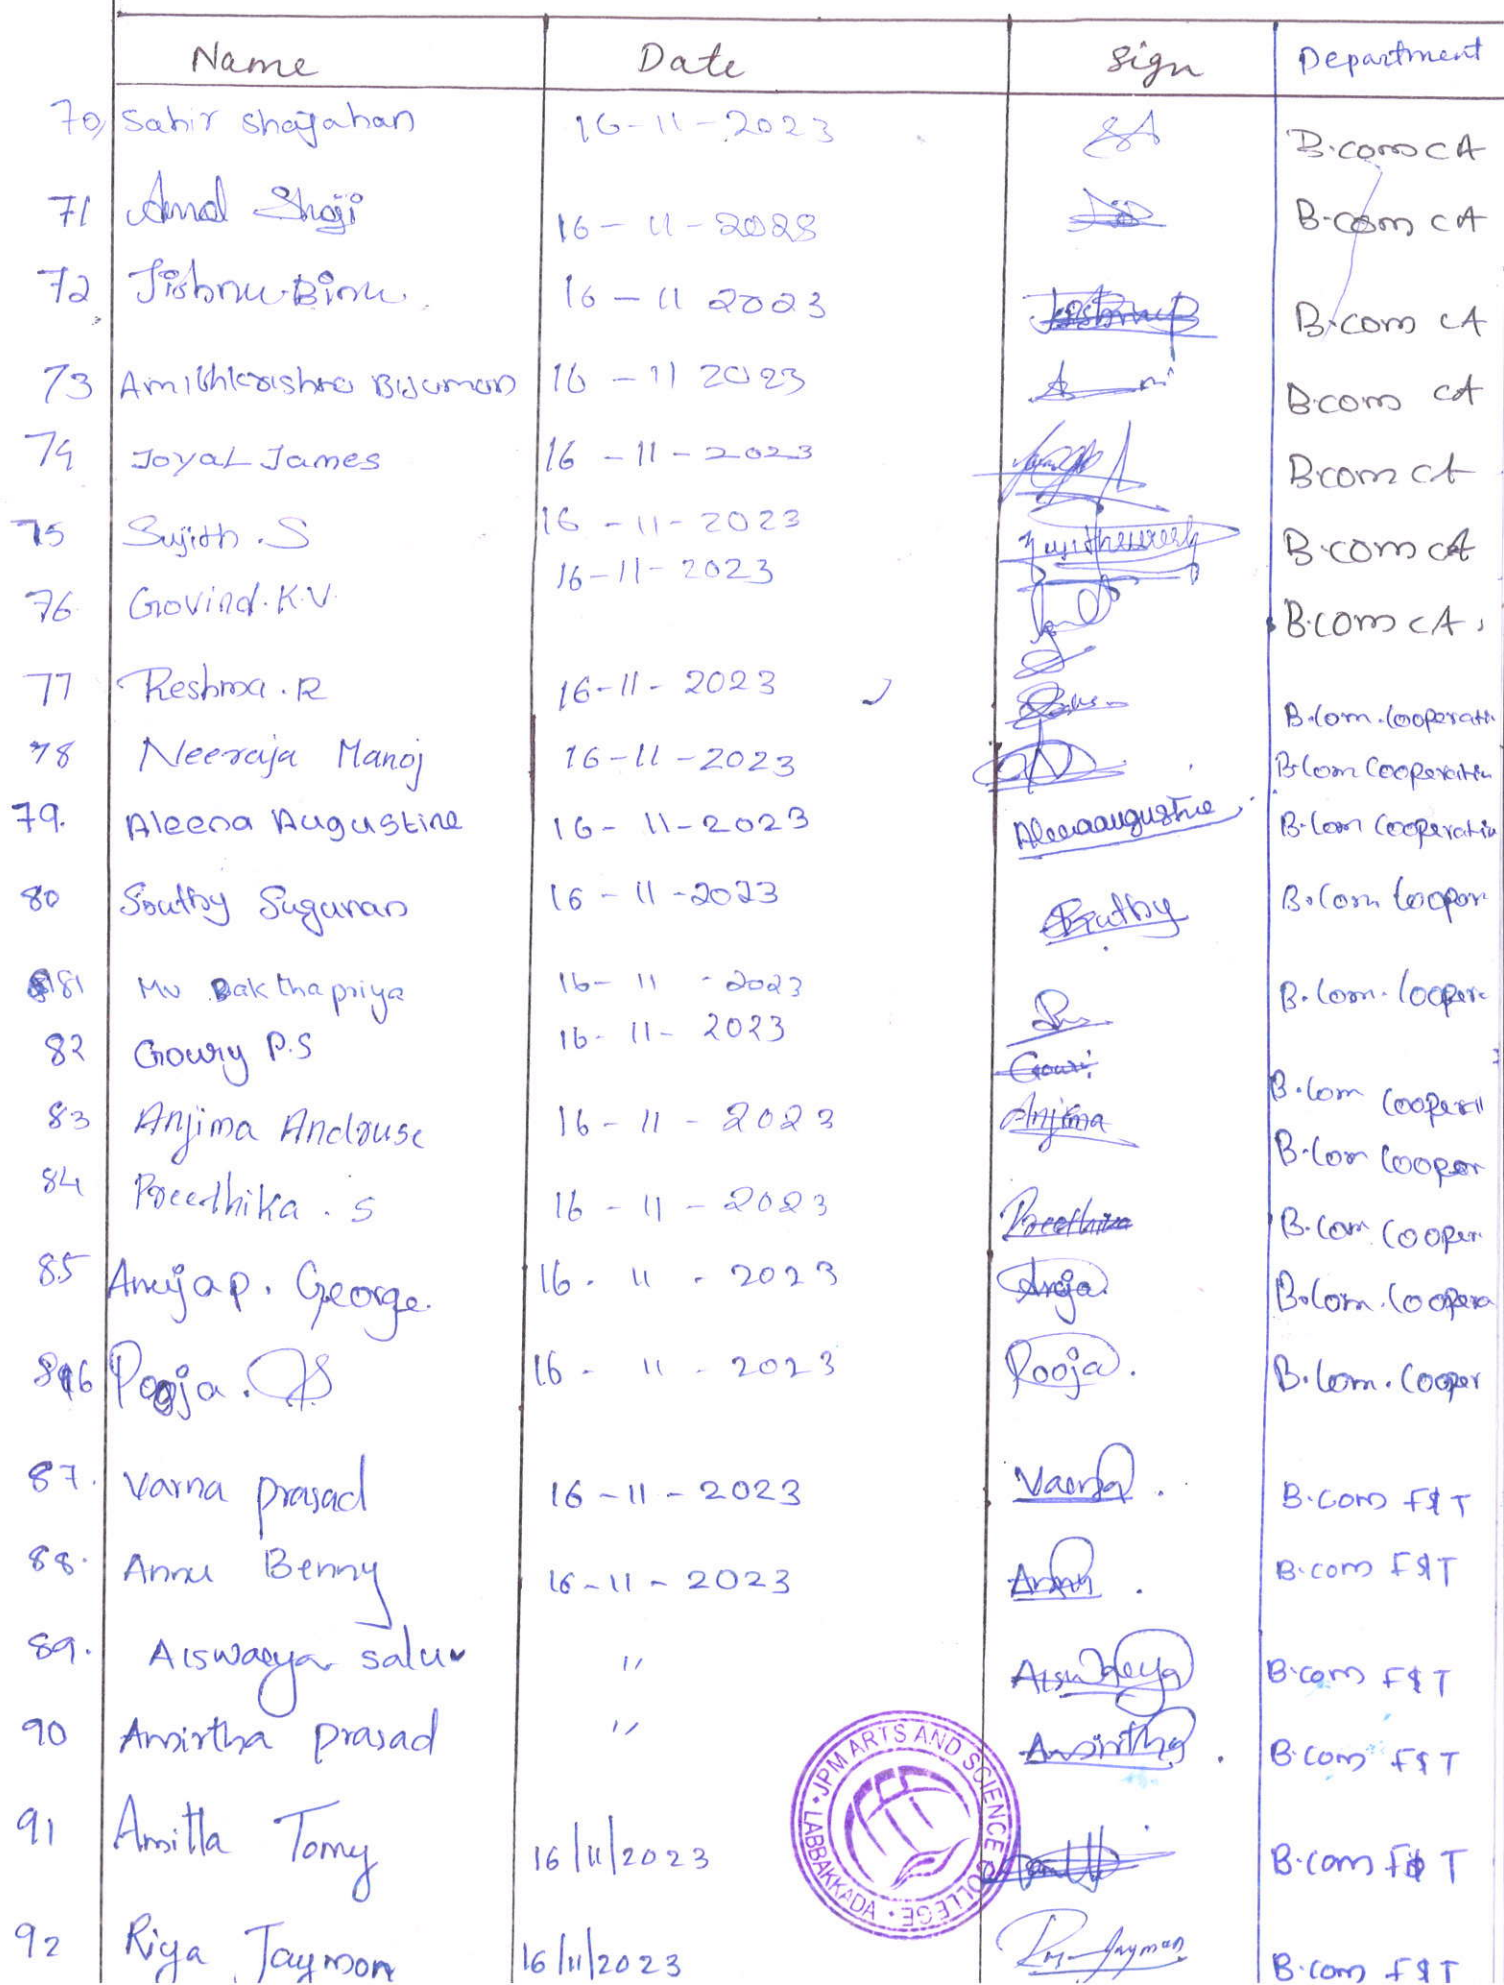 Name Date Sign Department
70, Sahir Shajahan 16-11-2023 B.com CA
71 Amal Shaji 16-11-2023 B.com CA
72 Jishnu Binu. 16-11 2023 B.com CA
73 Amithkrishna Bijumon 16-11 2023 B.com CA
74 Joyal James 16-11-2023 B.com CA
75 Sujith.S 16-11-2023 B.com CA
76 Govind.K.V. 16-11-2023 B.com CA
77 Reshma.R 16-11-2023 B.Com.Cooperati
78 Neeraja Manoj 16-11-2023 B.Com Cooperation
79. Aleena Augustine 16-11-2023 Aleenaaugustine B.Com Cooperatio
80 Sruthy Sugunan 16-11-2023 Sruthy B.Com Cooper
81 MV Bakthapriya 16-11-2023 B.Com.Cooper
82 Goury P.S 16-11-2023 Gouri B.Com Cooperti
83 Anjima Androuse 16-11-2023 Anjima B.Com Cooper
84 Preethika.S 16-11-2023 Preethika B.Com Cooper
85 Anuja P. George. 16-11-2023 Anuja B.Com.Coopera
86 Pooja. 16-11-2023 Pooja. B.Com.Cooper
87. Varna prasad 16-11-2023 Varna. B.com F&T
88. Annu Benny 16-11-2023 Annu. B.com F&T
89. Aiswarya salu 〃 Aiswarya B.com F&T
90 Amirtha prasad 〃 Amirtha. B.com F&T
91 Tomy 16/11/2023 B.com F&T
92 Riya Jaymon 16/11/2023 Jaymon B.com F&T
JPM ARTS AND SCIENCE COLLEGE • LABBAKKADA •